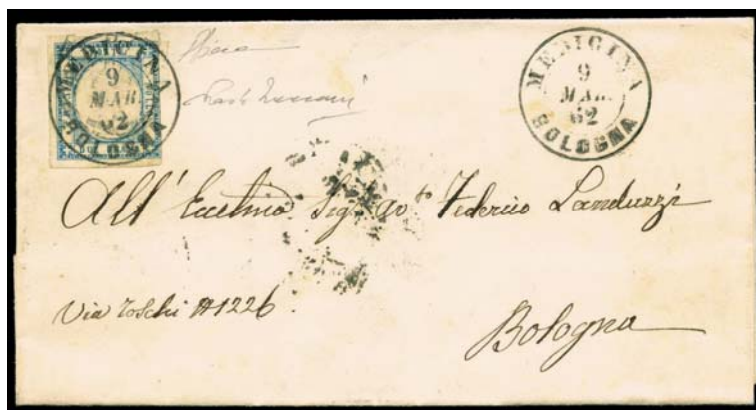 MEDICINA
9
MAR.
62
BOLOGNA
MEDICINA
9
MAR.
62
BOLOGNA
All' Eccelmo Sigr Avto Federico Landuzzi
Via Toschi N1226.
Bologna